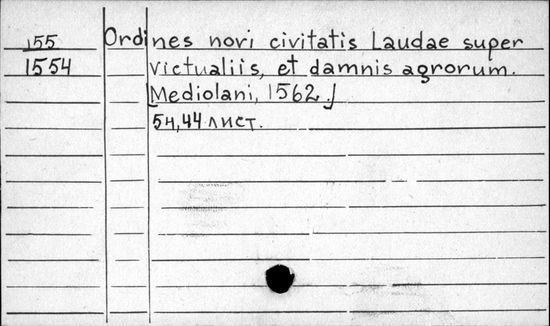 155 Ordines novi civitatis Laudae super
1554 victualiis, et damnis agrorum.
[Mediolani, 1562.]
5н, 44 лист.